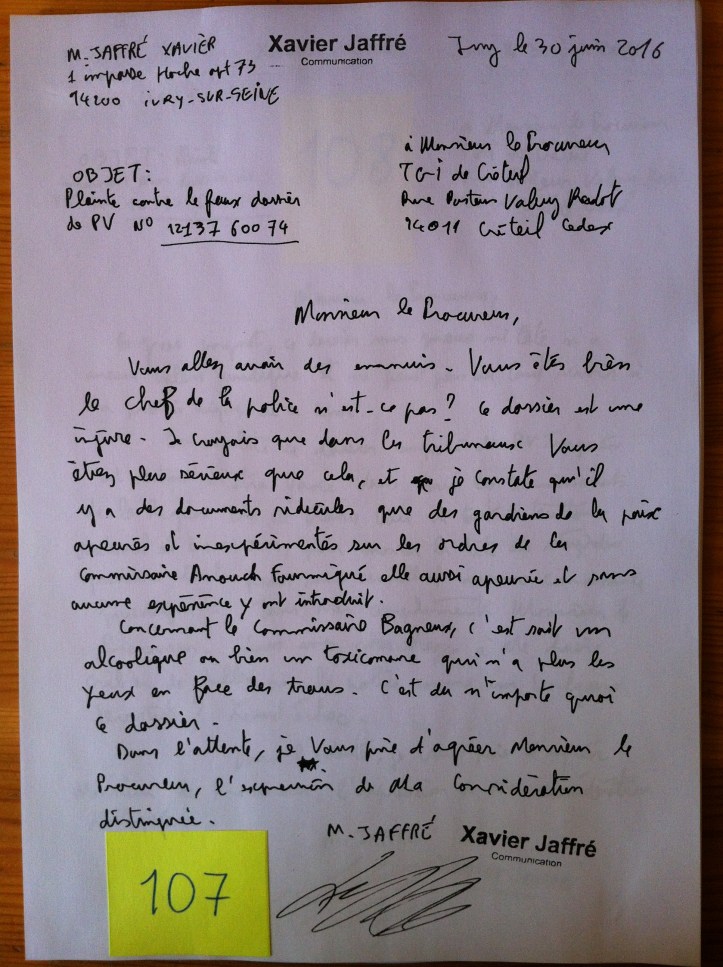 M. JAFFRÉ XAVIER
1 impasse Hoche apt 73
94200 IVRY-SUR-SEINE
Xavier Jaffré
Communication
Ivry le 30 juin 2016
à Monsieur le Procureur
TGI de Créteil
Rue Pasteur Valery Radot
94011 Créteil Cedex
OBJET:
Plainte contre le faux dossier
de PV NO 12137 600 74
Monsieur le Procureur,
Vous allez avoir des ennuis. Vous êtes bien
le chef de la police n'est-ce pas? Ce dossier est une
injure. Je croyais que dans les tribunaux Vous
étiez plus sérieux que cela, et je constate qu'il
y a des documents ridicules que des gardiens de la paix
apeurés et inexpérimentés sur les ordres de la
Commissaire Anouch Fourmigué elle aussi apeurée et sans
aucune expérience y ont introduit.
Concernant le Commissaire Bagneux, c'est soit un
alcoolique ou bien un toxicomane qui n'a plus les
yeux en face des trous. C'est du n'importe quoi
ce dossier.
Dans l'attente, je Vous prie d'agréer Monsieur le
Procureur, l'expression de Ma Considération
distinguée.
M. JAFFRÉ
Xavier Jaffré
Communication
107